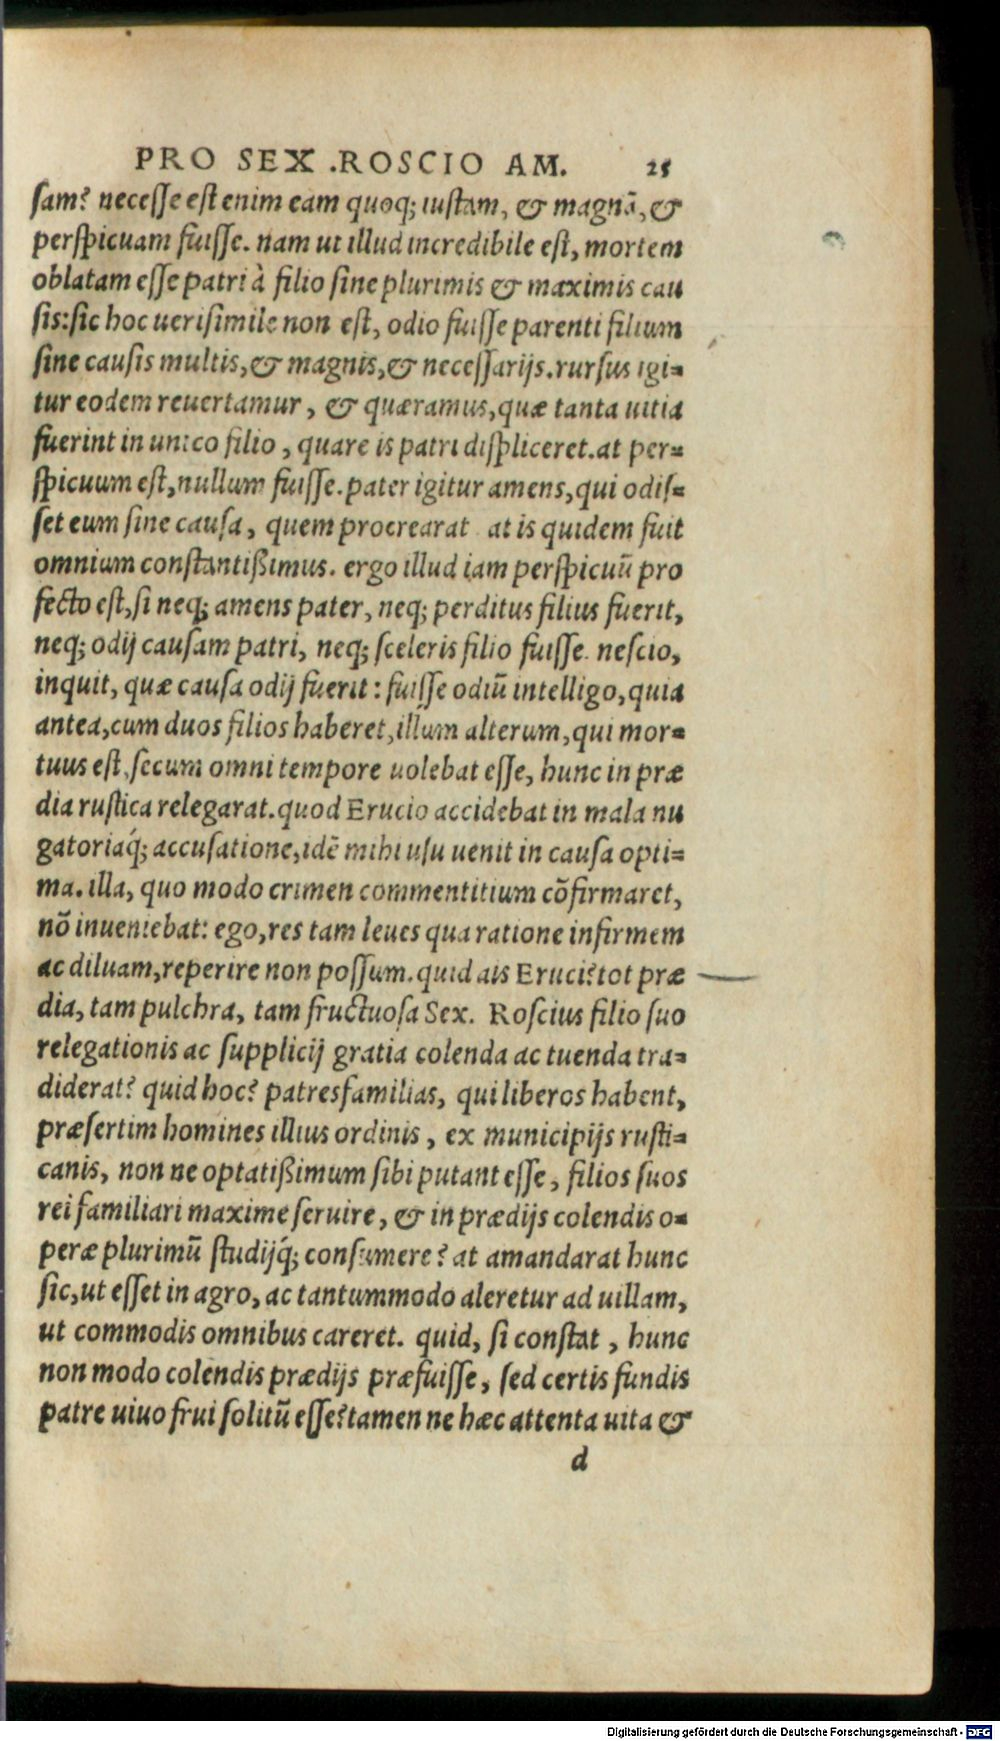 PRO SEX .ROSCIO AM. 25
ſam? neceſſe eſt enim eam quoq; iuſtam, & magnā, &
perſpicuam fuiſſe. nam ut illud incredibile eſt, mortem
oblatam eſſe patri à filio ſine plurimis & maximis cau
ſis: ſic hoc ueriſimile non eſt, odio fuiſſe parenti filium
ſine cauſis multis, & magnis, & neceſſarijs. rurſus igi=
tur eodem reuertamur, & quæramus, quæ tanta uitia
fuerint in unico filio, quare is patri diſpliceret. at per=
ſpicuum eſt, nullum fuiſſe. pater igitur amens, qui odiſ=
ſet eum ſine cauſa, quem procrearat at is quidem fuit
omnium conſtantißimus. ergo illud iam perſpicuū pro
fecto eſt, ſi neq; amens pater, neq; perditus filius fuerit,
neq; odij cauſam patri, neq; ſceleris filio fuiſſe. neſcio,
inquit, quæ cauſa odij fuerit: fuiſſe odiū intelligo, quia
antea, cum duos filios haberet, illum alterum, qui mor=
tuus eſt, ſecum omni tempore uolebat eſſe, hunc in præ
dia ruſtica relegarat. quod Erucio accidebat in mala nu
gatoriaq́; accuſatione, idē mihi uſu uenit in cauſa opti=
ma. illa, quo modo crimen commentitium cōfirmaret,
nō inueniebat: ego, res tam leues qua ratione infirmem
ac diluam, reperire non poſſum. quid ais Eruci? tot præ
dia, tam pulchra, tam fructuoſa Sex. Roſcius filio ſuo
relegationis ac ſupplicij gratia colenda ac tuenda tra=
diderat? quid hoc? patresfamilias, qui liberos habent,
præſertim homines illius ordinis, ex municipijs ruſti=
canis, non ne optatißimum ſibi putant eſſe, filios ſuos
rei familiari maxime ſeruire, & in prædijs colendis o=
peræ plurimū ſtudijq́; conſumere? at amandarat hunc
ſic, ut eſſet in agro, ac tantummodo aleretur ad uillam,
ut commodis omnibus careret. quid, ſi conſtat, hunc
non modo colendis prædijs præfuiſſe, ſed certis fundis
patre uiuo frui ſolitū eſſe? tamen ne hæc attenta uita &
d
Digitalisierung gefördert durch die Deutsche Forschungsgemeinschaft - DFG